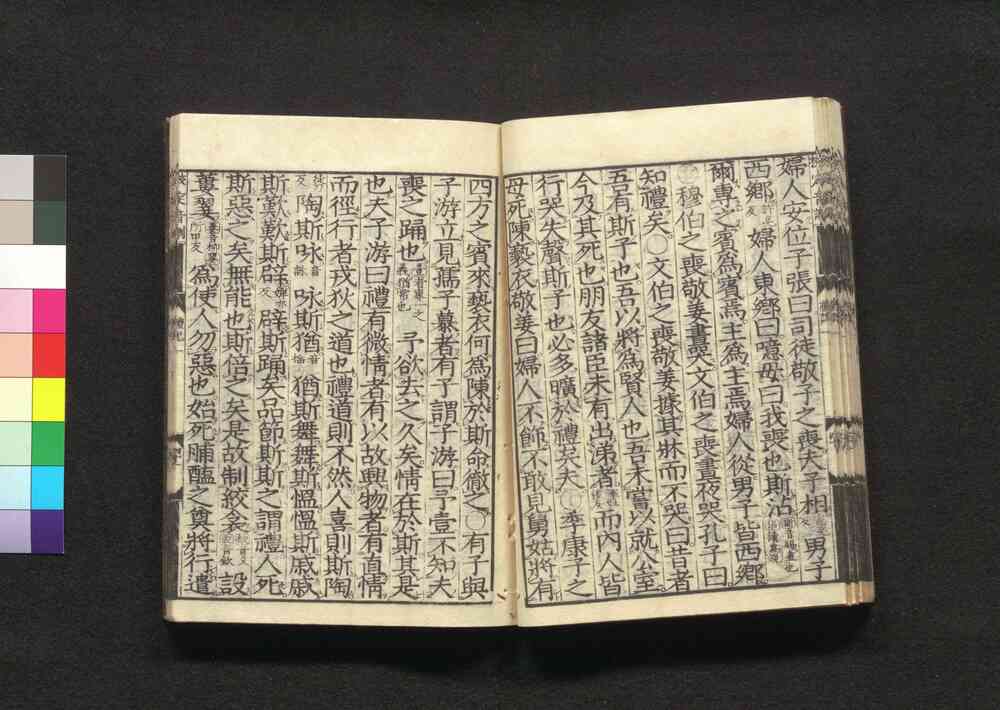 婦人安位子張曰司徒敬子之喪夫子相男子
西鄉婦人東鄉曰噫毋曰我喪也斯沾
爾專之賓爲賓焉主爲主焉婦人從男子皆西鄉
穆伯之喪敬姜晝哭文伯之喪晝夜哭孔子曰
知禮矣○文伯之喪敬姜據其牀而不哭曰昔者
吾有斯子也吾以將爲賢人也吾未嘗以就公室
今及其死也朋友諸臣未有出涕者而內人皆
行哭失聲斯子也必多曠於禮矣夫○季康子之
母死陳褻衣敬姜曰婦人不飾不敢見舅姑將有
四方之賓來褻衣何爲陳於斯命徹之○有子與
子游立見孺子慕者有子謂子游曰予壹不知夫
喪之踊也予欲去之久矣情在於斯其是
也夫子游曰禮有微情者有以故興物者有直情
而徑行者戎狄之道也禮道則不然人喜則斯陶
陶斯咏咏斯猶猶斯舞舞斯慍慍斯戚戚
斯歎歎斯辟辟斯踊矣品節斯斯之謂禮人死
斯惡之矣無能也斯倍之矣是故制絞衾設
蔞翣爲使人勿惡也始死脯醢之奠將行遣